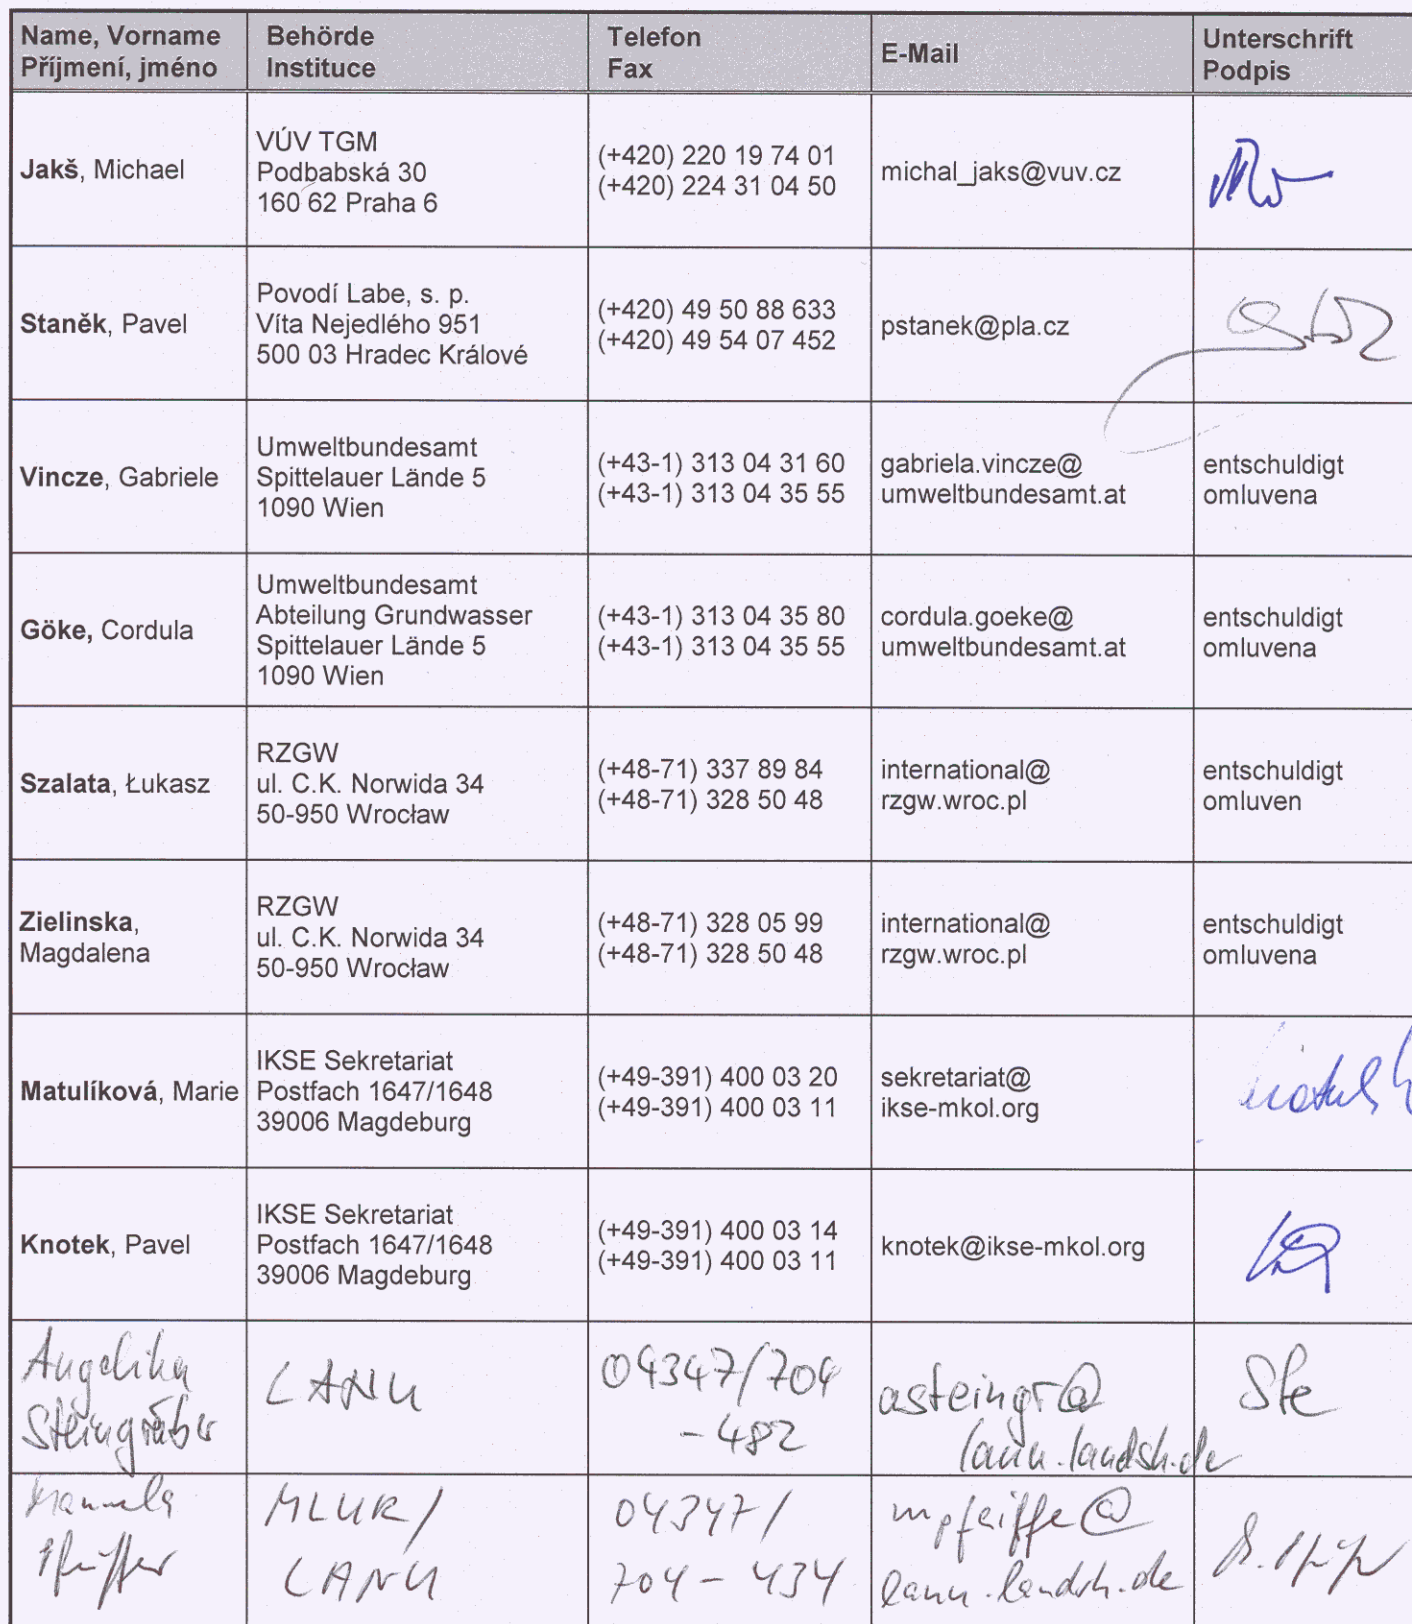 Name, Vorname
Příjmení, jméno
Behörde
Instituce
Telefon
Fax
E-Mail
Unterschrift
Podpis
Jakš, Michael
VÚV TGM
Podbabská 30
160 62 Praha 6
(+420) 220 19 74 01
(+420) 224 31 04 50
michal_jaks@vuv.cz
Staněk, Pavel
Povodí Labe, s. p.
Víta Nejedlého 951
500 03 Hradec Králové
(+420) 49 50 88 633
(+420) 49 54 07 452
pstanek@pla.cz
Vincze, Gabriele
Umweltbundesamt
Spittelauer Lände 5
1090 Wien
(+43-1) 313 04 31 60
(+43-1) 313 04 35 55
gabriela.vincze@
umweltbundesamt.at
entschuldigt
omluvena
Göke, Cordula
Umweltbundesamt
Abteilung Grundwasser
Spittelauer Lände 5
1090 Wien
(+43-1) 313 04 35 80
(+43-1) 313 04 35 55
cordula.goeke@
umweltbundesamt.at
entschuldigt
omluvena
Szalata, Łukasz
RZGW
ul. C.K. Norwida 34
50-950 Wrocław
(+48-71) 337 89 84
(+48-71) 328 50 48
international@
rzgw.wroc.pl
entschuldigt
omluven
Zielinska,
Magdalena
RZGW
ul. C.K. Norwida 34
50-950 Wrocław
(+48-71) 328 05 99
(+48-71) 328 50 48
international@
rzgw.wroc.pl
entschuldigt
omluvena
Matulíková, Marie
IKSE Sekretariat
Postfach 1647/1648
39006 Magdeburg
(+49-391) 400 03 20
(+49-391) 400 03 11
sekretariat@
ikse-mkol.org
Knotek, Pavel
IKSE Sekretariat
Postfach 1647/1648
39006 Magdeburg
(+49-391) 400 03 14
(+49-391) 400 03 11
knotek@ikse-mkol.org
Angelika
Steingräber
LANU
04347/704
-482
asteingr@
lanu.landsh.de
Ste
Manuela
Pfeiffer
MLUR/
LANU
04347/
704-434
mpfeiffe@
lanu.landsh.de